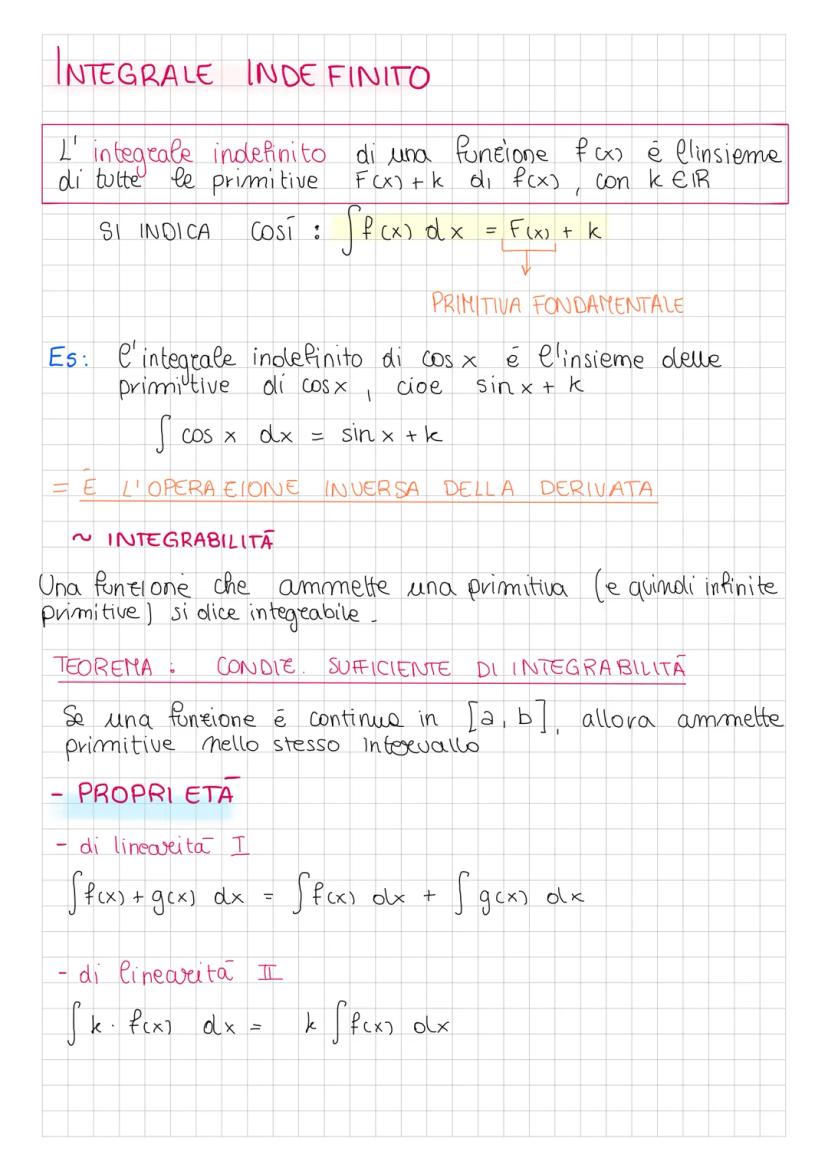 INTEGRALE INDEFINITO
L' integrale indefinito di una funzione f(x) è l'insieme
di tutte le primitive F(x) + k di f(x), con k ∈ ℝ
SI INDICA COSÌ : ∫ f(x) dx = F(x) + k
PRIMITIVA FONDAMENTALE
Es: l'integrale indefinito di cos x è l'insieme delle
primitive di cos x , cioe sin x + k
∫ cos x dx = sin x + k
= È L'OPERAZIONE INVERSA DELLA DERIVATA
~ INTEGRABILITÀ
Una funzione che ammette una primitiva (e quindi infinite
primitive) si dice integrabile.
TEOREMA : CONDIZ. SUFFICIENTE DI INTEGRABILITÀ
Se una funzione è continua in [a, b], allora ammette
primitive nello stesso intervallo
- PROPRIETÀ
- di linearità I
∫ f(x) + g(x) dx = ∫ f(x) dx + ∫ g(x) dx
- di linearità II
∫ k · f(x) dx = k ∫ f(x) dx